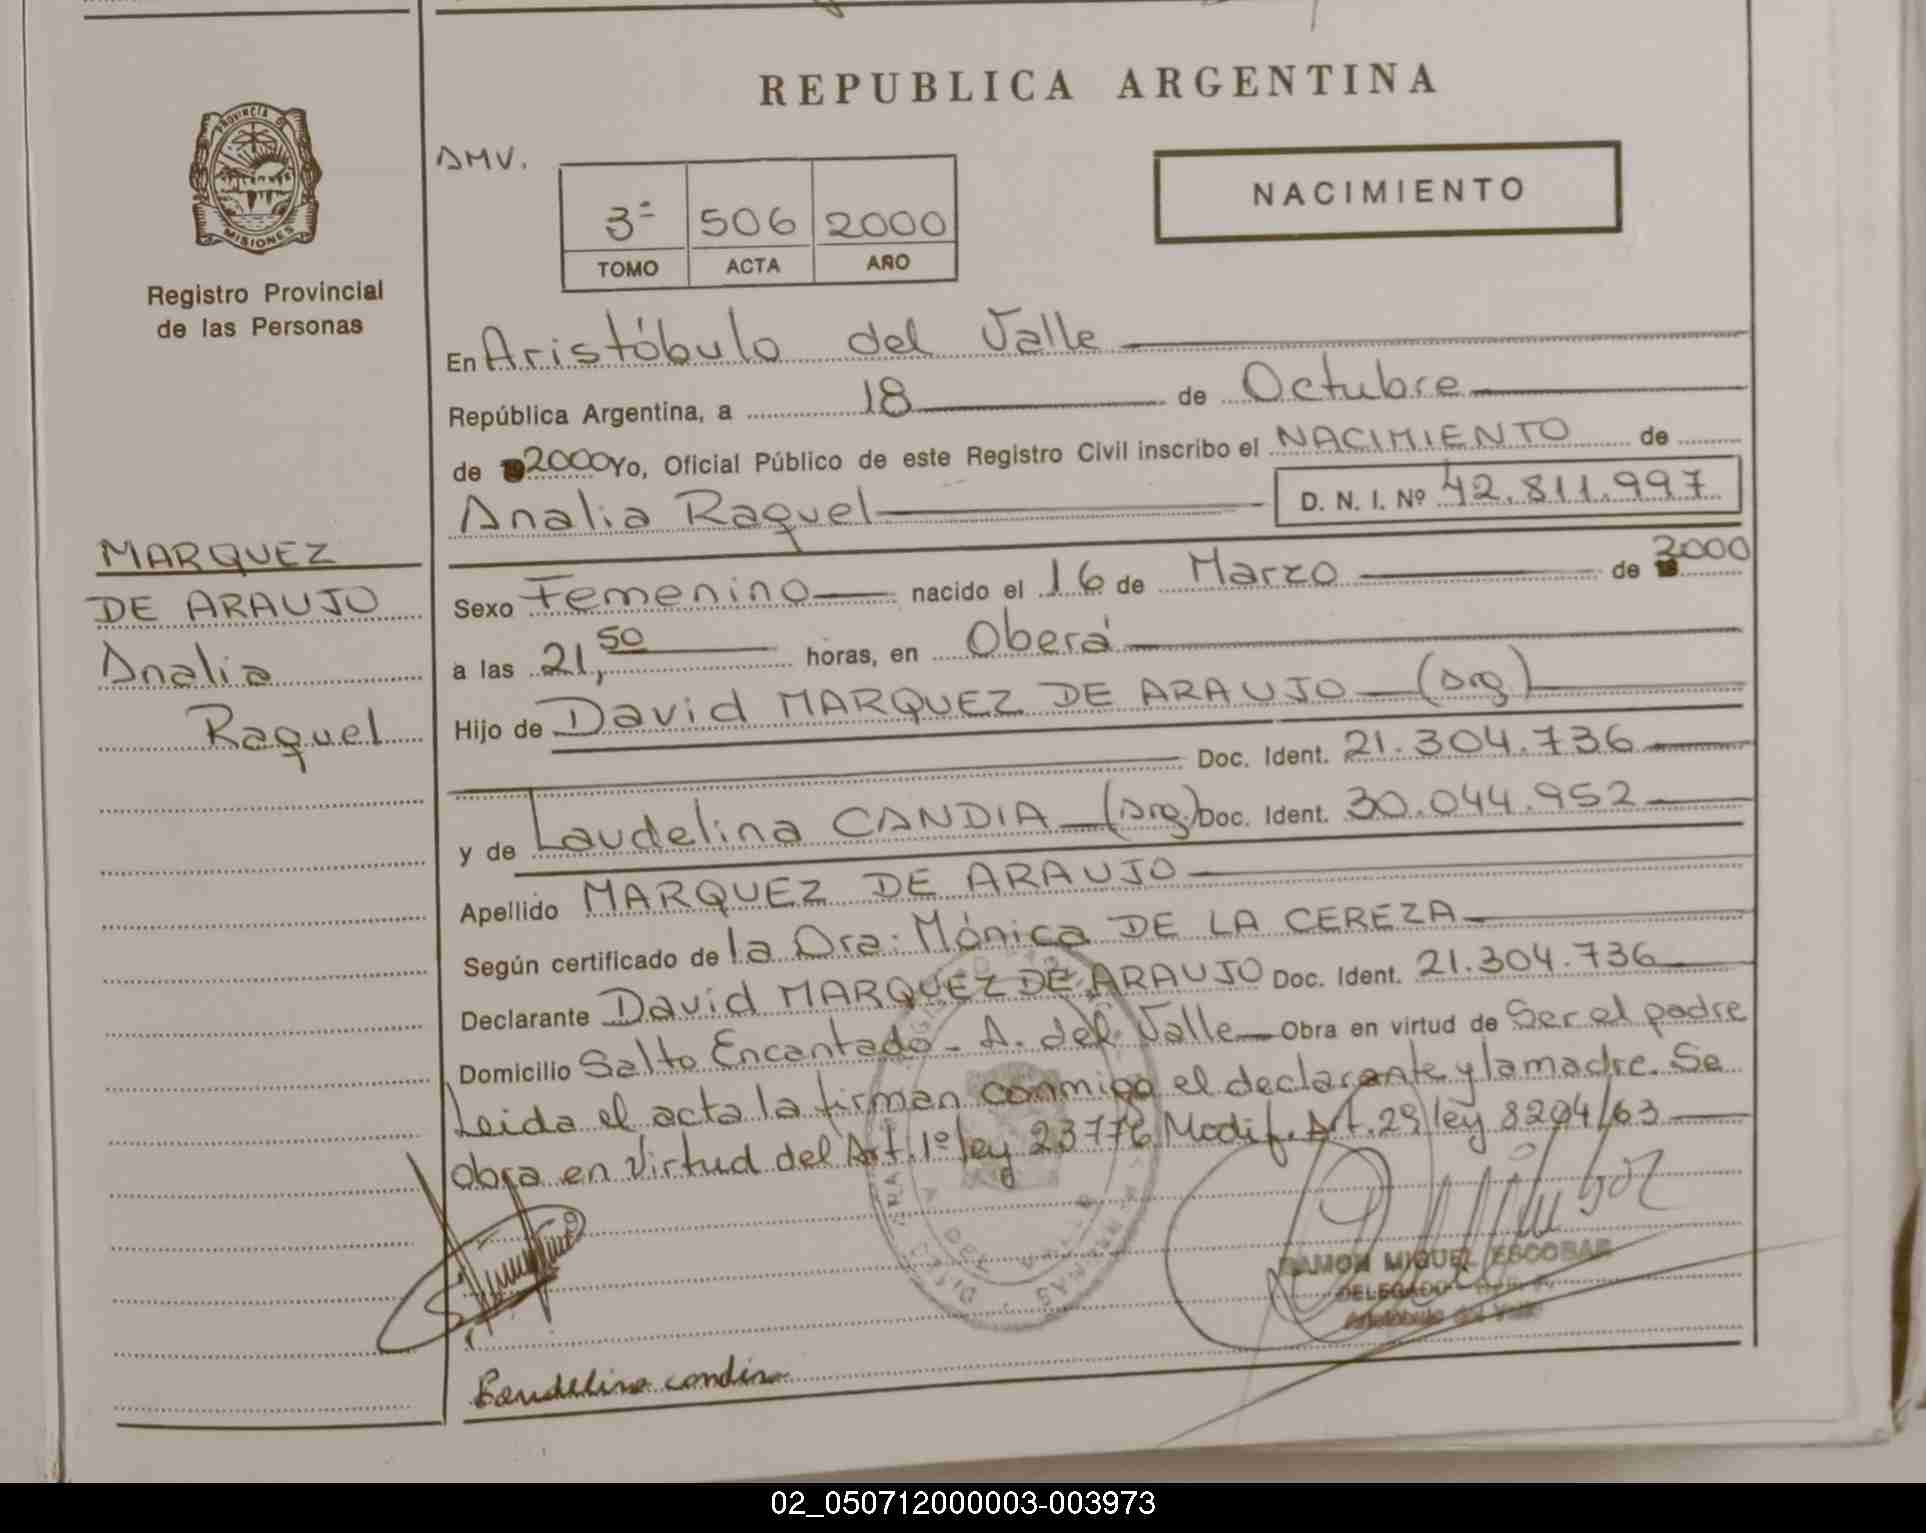 REPUBLICA ARGENTINA
PROVINCIA DE
MISIONES
Registro Provincial
de las Personas
AMV.
3º 506 2000
TOMO ACTA AÑO
NACIMIENTO
En Aristóbulo del Valle
República Argentina, a 18 de Octubre
de 2000 Yo, Oficial Público de este Registro Civil inscribo el NACIMIENTO de
Analia Raquel D. N. I. Nº 42.811.997
MARQUEZ
DE ARAUJO
Analia
Raquel
Sexo Femenino nacido el 16 de Marzo de 2000
a las 21,50 horas, en Oberá
Hijo de David MARQUEZ DE ARAUJO (Arg)
Doc. Ident. 21.304.736
y de Laudelina CANDIA (Arg.) Doc. Ident. 30.044.952
Apellido MARQUEZ DE ARAUJO
Según certificado de la Dra. Mónica DE LA CEREZA
Declarante David MARQUEZ DE ARAUJO Doc. Ident. 21.304.736
Domicilio Salto Encantado - A. del Valle Obra en virtud de Ser el padre
Leida el acta la firman conmigo el declarante y la madre. Se
obra en Virtud del Art. 1º ley 23776 Modif. Art. 29 ley 8204/63
A DEL VALLE
RAMON MIGUEL ESCOBAR
DELEGADO
Aristóbulo del Valle
Laudelina candia
02_050712000003-003973